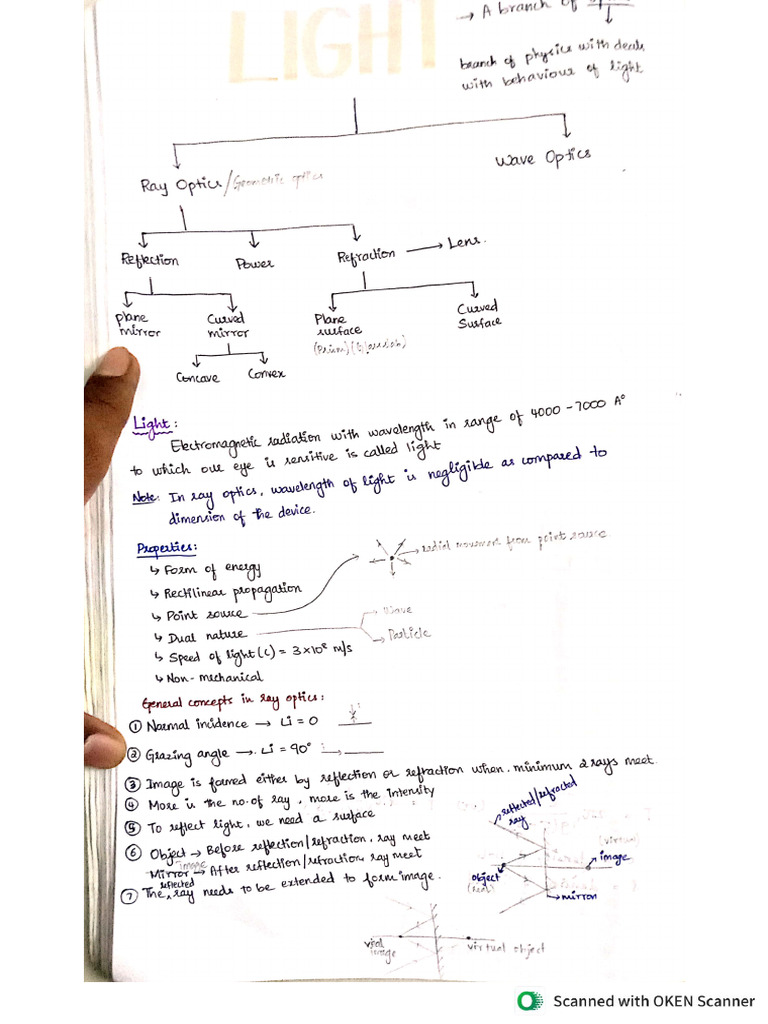 LIGHT
→ A branch of
branch of physics with deals
with behaviour of light
Ray Optics/Geometric optics
Wave Optics
Reflection
Power
Refraction → Lens.
plane
mirror
Curved
mirror
Plane
surface
(Prism)
Curved
Surface
Concave
Convex
Light:
Electromagnetic radiation with wavelength in range of 4000 - 7000 A°
to which our eye is sensitive is called light
Note: In ray optics, wavelength of light is negligible as compared to
dimension of the device.
Properties:
↳ Form of energy
→ radial movement from point source
↳ Rectilinear propagation
↳ Point source
Wave
↳ Dual nature
Particle
↳ Speed of light (c) = 3×10⁸ m/s
↳ Non-mechanical
General concepts in ray optics:
① Normal incidence → Li = 0
② Grazing angle → Li = 90°
③ Image is formed either by reflection or refraction when minimum 2 rays meet.
④ More is the no. of ray, more is the intensity
⑤ To reflect light, we need a surface
⑥ Object → Before reflection/refraction, ray meet
image
Mirror → After reflection/refraction, ray meet
reflected
⑦ The ray needs to be extended to form image.
reflected/refracted
ray
(virtual)
image
object
(real)
mirror
real
image
virtual object
Scanned with OKEN Scanner